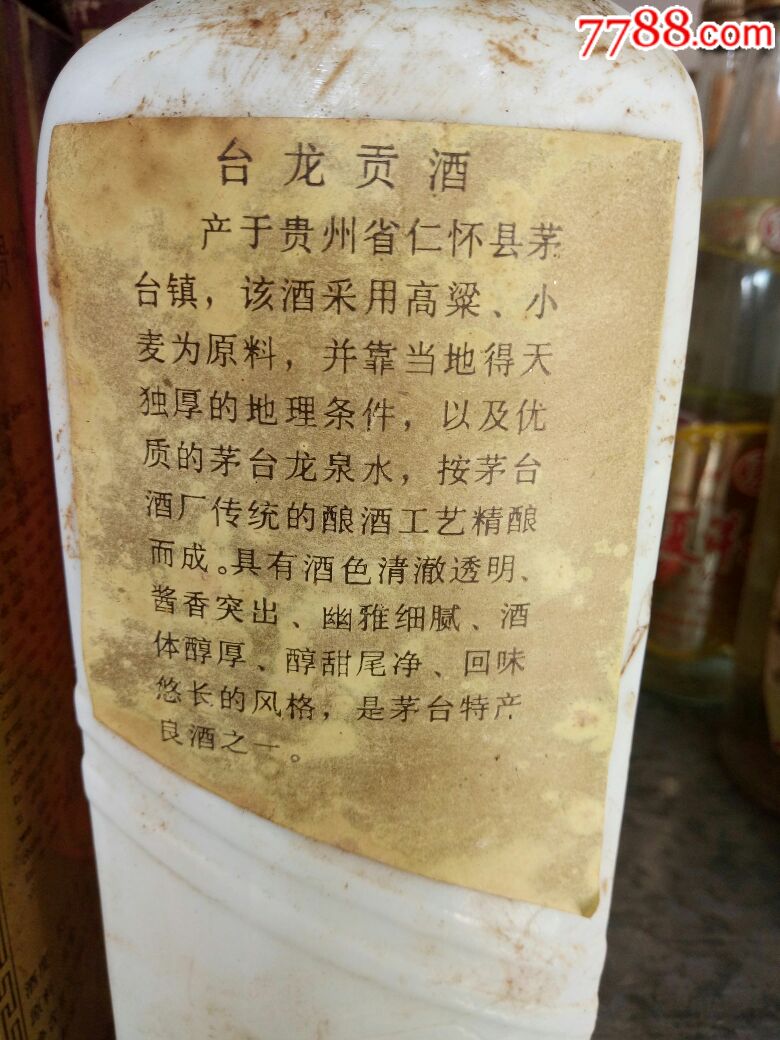 7788.com
台龙贡酒
产于贵州省仁怀县茅
台镇，该酒采用高粱、小
麦为原料，并靠当地得天
独厚的地理条件，以及优
质的茅台龙泉水，按茅台
酒厂传统的酿酒工艺精酿
而成。具有酒色清澈透明、
酱香突出、幽雅细腻、酒
体醇厚、醇甜尾净、回味
悠长的风格，是茅台特产
良酒之一。